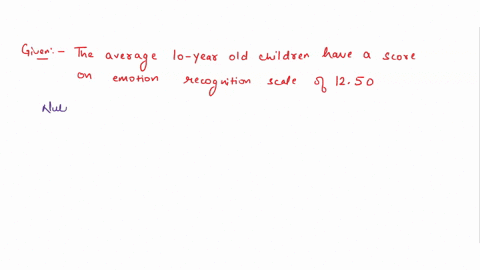 Given:- The average 10-year old children have a score
on emotion recognition scale of 12.50
Nul